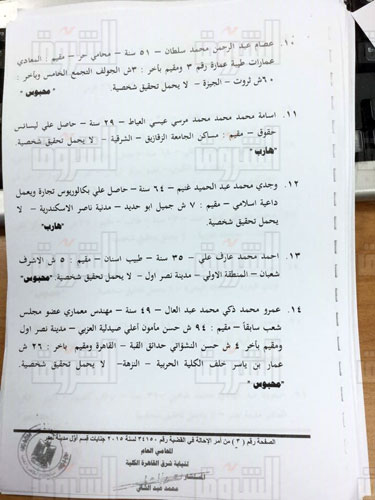 ١٠. عصام عبد الرحمن محمد سلطان – ٥١ سنة – محامي حر – مقيم : المعادي
عمارات طيبة عمارة رقم ٣ ومقيم بآخر : ٣ش الجولف التجمع الخامس وبآخر :
٦٠ش ثروت – الجيزة – لا يحمل تحقيق شخصية. "محبوس"
١١. اسامة محمد محمد محمد مرسي عيسى العياط – ٢٩ سنة – حاصل علي ليسانس
حقوق – مقيم : مساكن الجامعة الزقازيق – الشرقية – لا يحمل تحقيق شخصية.
"هارب"
١٢. وجدي محمد عبد الحميد غنيم – ٦٤ سنة – حاصل علي بكالوريوس تجارة ويعمل
داعية اسلامي – مقيم : ٧ ش جميل ابو حديد – مدنية ناصر الاسكندرية – لا
يحمل تحقيق شخصية. "هارب"
١٣. احمد محمد عارف علي – ٣٥ سنة – طبيب اسنان – مقيم : ٥ ش الاشرف
شعبان – المنطقة الاولي – مدينة نصر اول – لا يحمل تحقيق شخصية. "محبوس"
١٤. عمرو محمد ذكي محمد عبد العال – ٤٩ سنة – مهندس معماري عضو مجلس
شعب سابقا – مقيم : ٩٤ ش حسن مأمون أعلي صيدلية العزبي – مدينة نصر اول
ومقيم بآخر ٤ ش حسن النشؤاتي حدائق القبة – القاهرة ومقيم بآخر : ٢٦ ش
عمار بن ياسر خلف الكلية الحربية – النزهة– لا يحمل تحقيق شخصية.
"محبوس"
الصفحة رقم ( ٣ ) من أمر الاحالة في القضية رقم ٣٤١٥٠ لسنة ٢٠١٥ جنايات قسم أول مدينة نصر
المحامي العام
لنيابة شرق القاهرة الكلية
المستشار
محمد عبد الشافي
الشروق